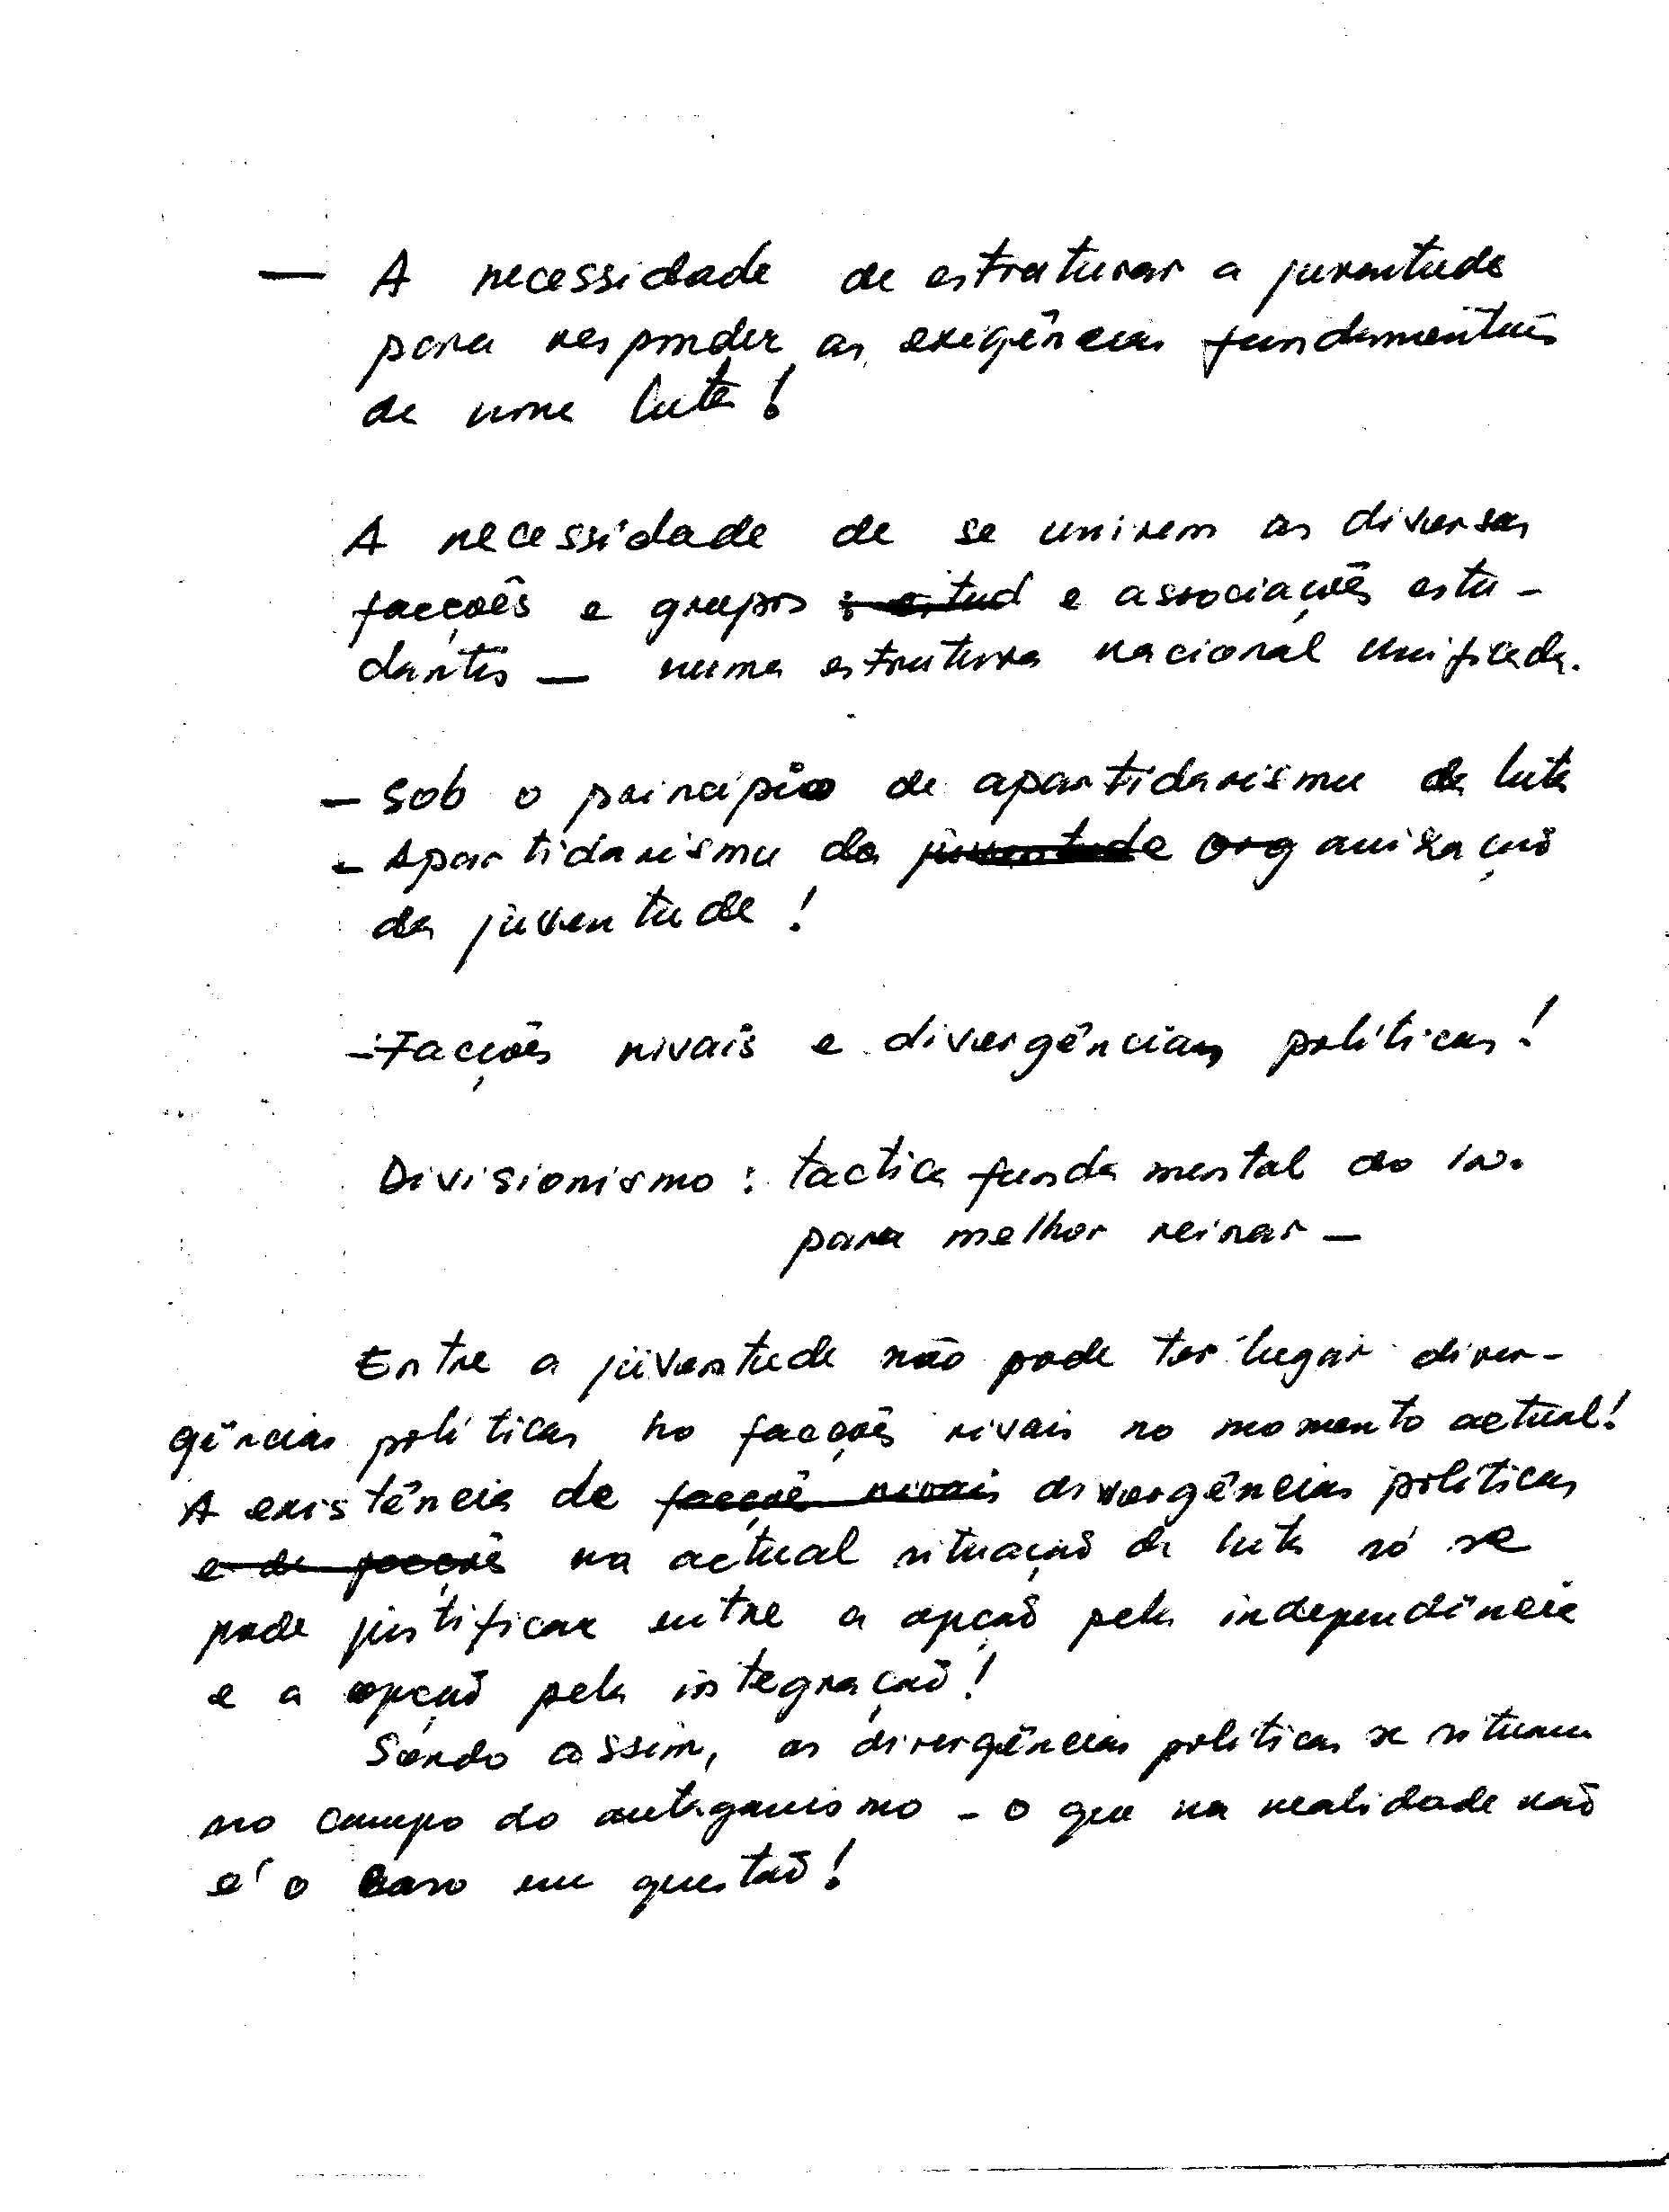 — A necessidade de estruturar a juventude
para responder as exigências fundamentais
de uma luta!
A necessidade de se unirem as diversas
facções e grupos : estud e associações estu-
dantis — numa estrutura nacional unificada.
- Sob o principio de apartidarismu da luta
- Apartidarismu da juventude organização
da juventude!
- Facções rivais e divergências políticas!
Divisionismo : tactica fundamental do in.
para melhor reinar —
Entre a juventude não pode ter lugar diver-
gências políticas no facções rivais no momento actual!
A existência de facçoê rivais divergências políticas
e de facçoês na actual situação da luta só se
pode justificar entre a opção pela independência
e a opção pela integração!
Sendo assim, as divergências políticas se situam
no campo do antagonismo - o que na realidade não
é o caso em questão!